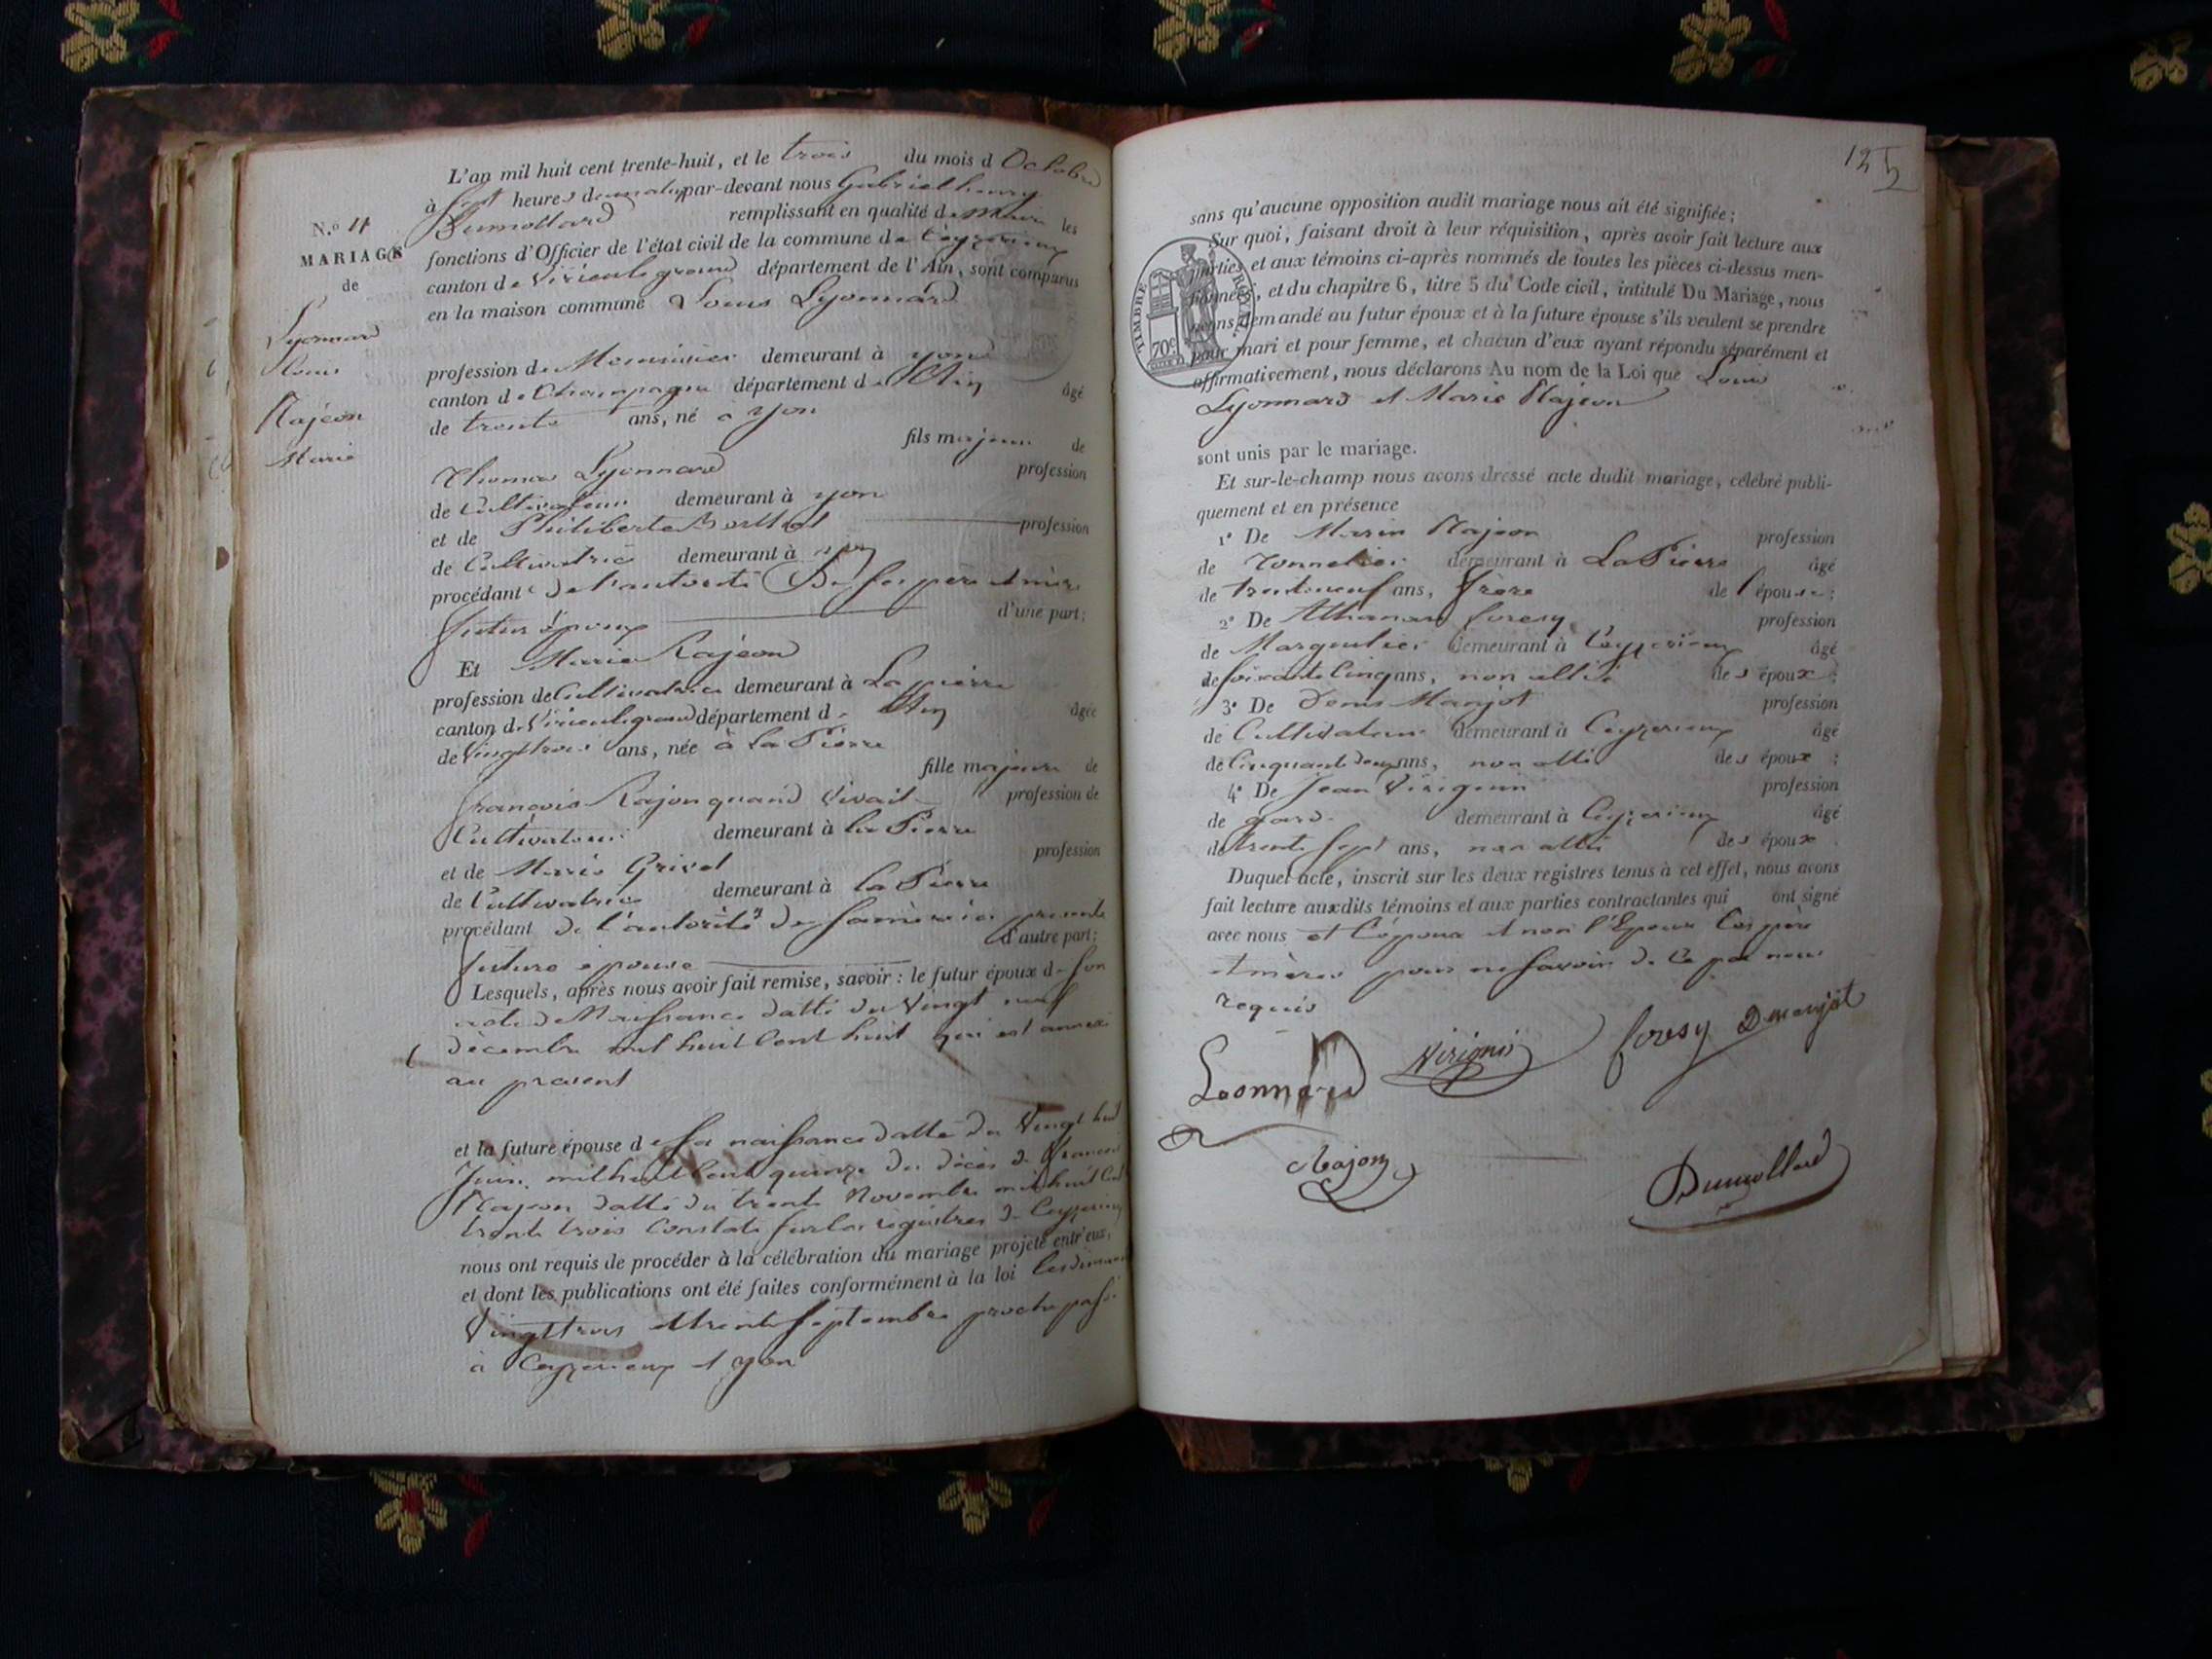 L'an mil huit cent trente-huit, et le trois du mois d Octobre
à sept heures du matin par-devant nous Gabriel henry
Dumollard remplissant en qualité de Maire les
N.º 11
MARIAGE
de
Lyonnard
Louis
Rajeon
Marie
fonctions d'Officier de l'état civil de la commune de Ceyzerieux
canton de Virieu le grand département de l'Ain, sont comparus
en la maison commune Louis Lyonnard
profession de Menuisier demeurant à yon
canton de Champagne département de l'Ain âgé
de trente ans, né a yon
fils majeur de
Thomas Lyonnard profession
de Cultivateur demeurant à yon
et de Philiberte profession
de Cultivatrice demeurant à yon
procédant de l'autorité De ses père et mère
futur époux d'une part;
Et Marie Rajeon
profession de Cultivatrice demeurant à La pierre
canton de Virieu le grand département de l'Ain âgée
de Vingt trois ans, née à la Pierre
fille majeure de
françois Rajon quand Vivait profession de
Cultivateur demeurant à la Pierre
et de Marie Grivet profession
de Cultivatrice demeurant à la Pierre
procédant de l'autorité de sa mère ici presente
future epouse d'autre part;
Lesquels, après nous avoir fait remise, savoir : le futur époux de son
acte de Naissance datté du Vingt neuf
décembre mil huit Cent huit qui est annexé
au present
et la future épouse de sa naissance datté du Vingt huit
Juin mil huit Cent quinze du décès de françois
Rajeon datté du trente Novembre mil huit Cent
trente trois Constaté sur les registres de Ceyzerieux
nous ont requis de procéder à la célébration du mariage projeté entr'eux,
et dont les publications ont été faites conformément à la loi les dimanches
Vingt trois et trente septembre proche passé
à Ceyzerieux et yon
125
sans qu'aucune opposition audit mariage nous ait été signifiée ;
Sur quoi, faisant droit à leur réquisition, après avoir fait lecture aux
parties et aux témoins ci-après nommés de toutes les pièces ci-dessus men-
tionnées, et du chapitre 6, titre 5 du Code civil, intitulé Du Mariage, nous
avons demandé au futur époux et à la future épouse s'ils veulent se prendre
pour mari et pour femme, et chacun d'eux ayant répondu séparément et
affirmativement, nous déclarons Au nom de la Loi que Louis
Lyonnard et Marie Rajeon
TIMBRE ROYAL
70c
sont unis par le mariage.
Et sur-le-champ nous avons dressé acte dudit mariage, célébré publi-
quement et en présence
1º De Marin Rajeon profession
de Tonnelier demeurant à La Pierre âgé
de trente neuf ans, frère de l'épouse ;
2º De Athanase foresy profession
de Marguilier demeurant à Ceyzerieux âgé
de soixante Cinq ans, non allié des époux ;
3º De Denis Marjot profession
de Cultivateur demeurant à Ceyzerieux âgé
de Cinquante deux ans, non allié des époux ;
4º De Jean Virignin profession
de garde demeurant à Ceyzerieux âgé
de trente sept ans, non allié des époux .
Duquel acte, inscrit sur les deux registres tenus à cet effet, nous avons
fait lecture auxdits témoins et aux parties contractantes qui ont signé
avec nous et l'époux et non l'Epouse Les père
et mères pour ne savoir de Ce par nous
requis
Leonnard Virignin foresy D marjot
Rajon Dumollard